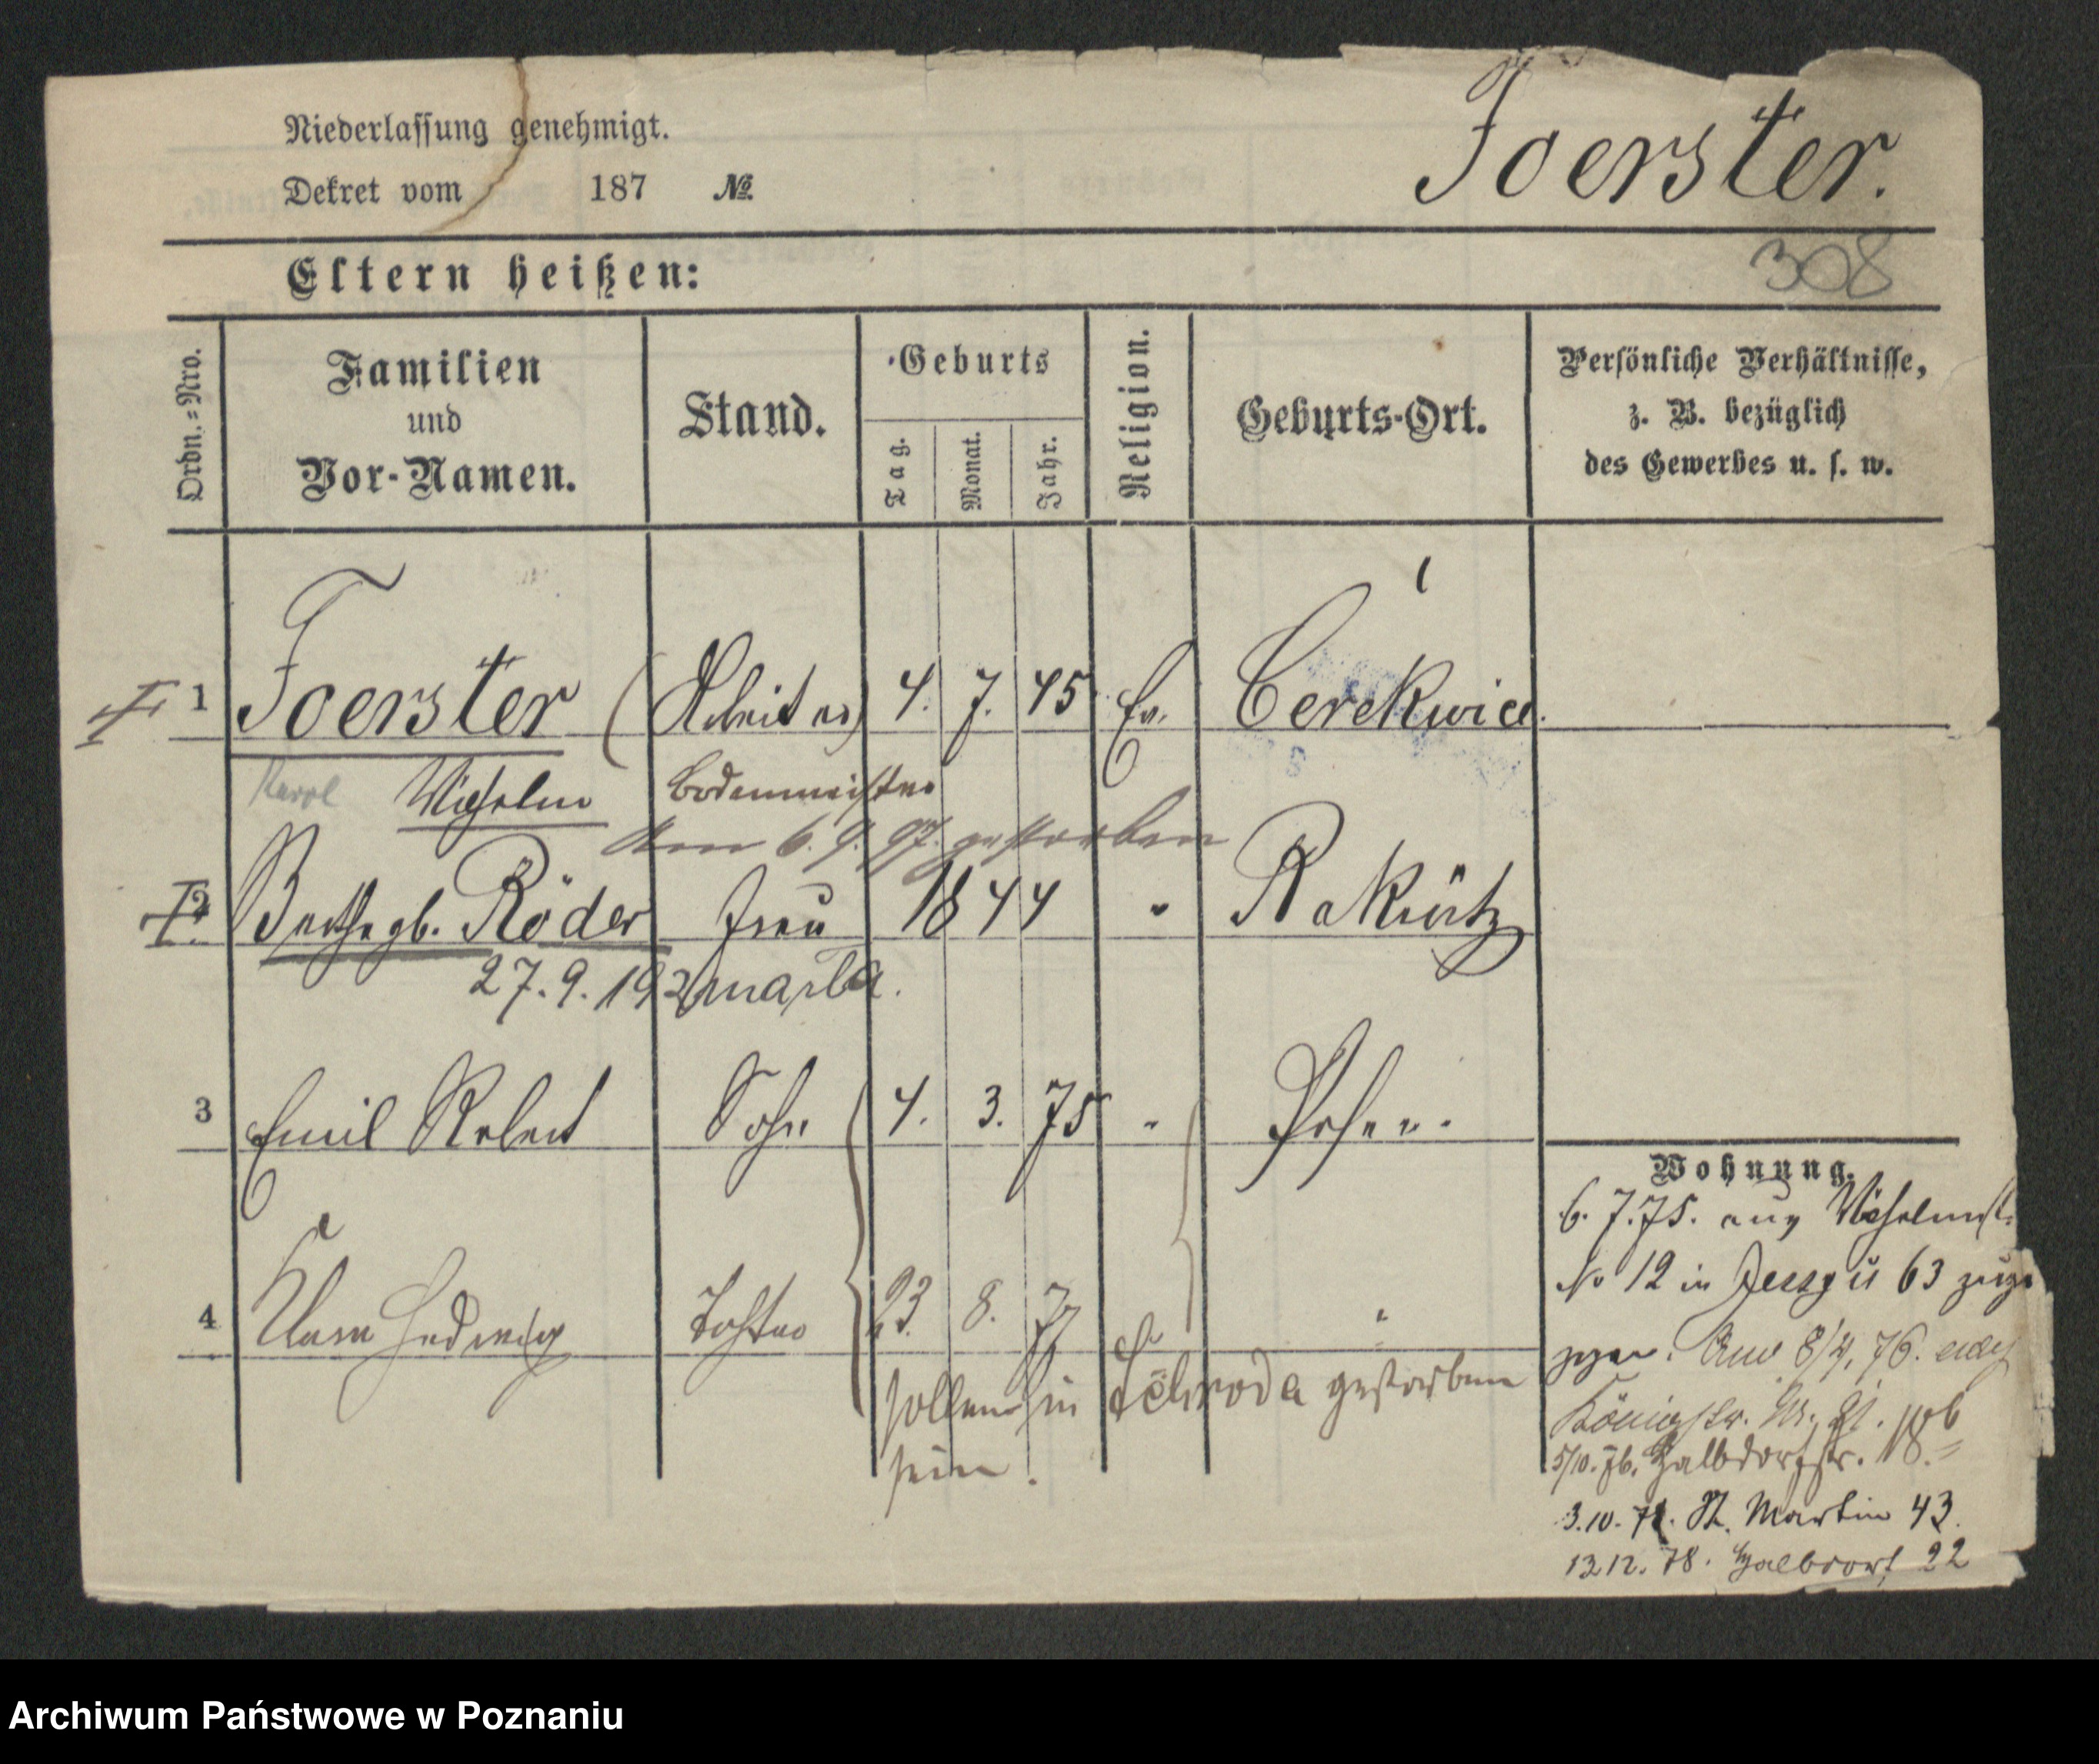 Niederlassung genehmigt.
Dekret vom 187 №
Foerster.
308
Eltern heißen:
Ordn.=Nro.
Familien
und
Vor-Namen.
Stand.
Geburts
Tag.
Monat.
Jahr.
Religion.
Geburts-Ort.
Persönliche Verhältnisse,
z. B. bezüglich
des Gewerbes u. s. w.
1 Foerster (Arbeiter) 4. 7. 45 Ev. Cerekwice.
Karol Wilhelm Bodenmeister
Am 6. 9. 97. gestorben
2 Berthe gb. Röder Frau 1844 " Rakwitz
27. 9. 192 marła.
3 Emil Robert Sohn 4. 3. 75 " Posen.
4 Clara Hedwig Tochter 23. 8. 77 Ev "
sollen in Schroda gestorben
sein.
Wohnung.
6. 7. 75. aus Wilhelmst.
No 12 in 63 zuge
zogen. Am 8/4. 76. nach
Königstr. Nr. 21.
5/10. 76. Halbdorfstr. 18.
3. 10. 78. St. Martin 43.
13 12. 78. Halbdorf 22
Archiwum Państwowe w Poznaniu